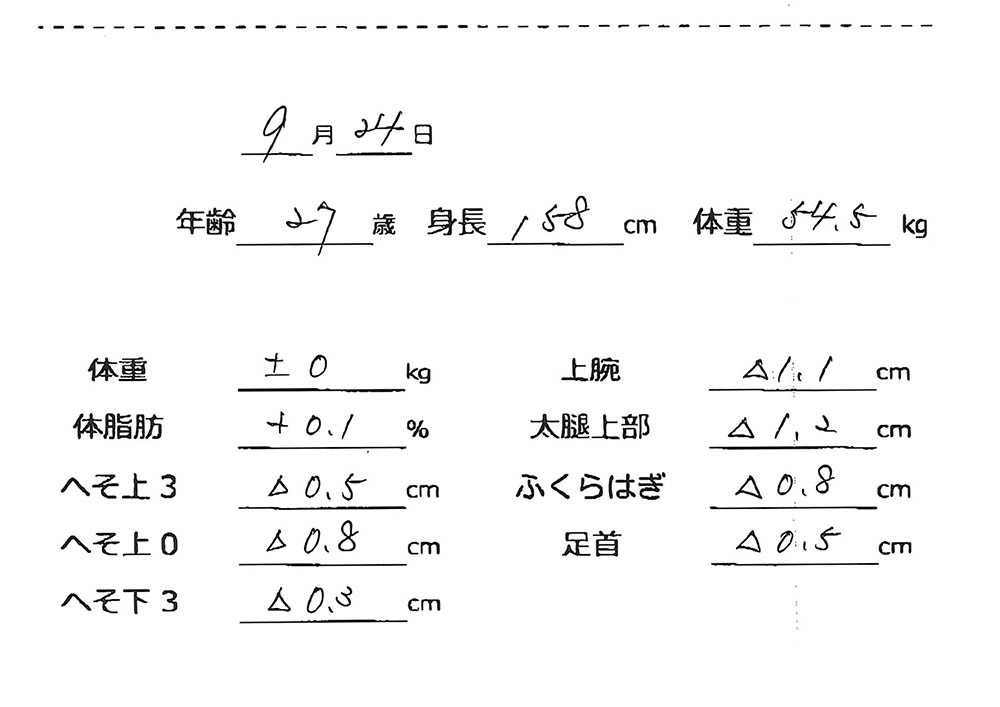 9月24日
年齢 27 歳 身長 158 cm 体重 54.5 kg
体重 ±0 kg 上腕 △1.1 cm
体脂肪 +0.1 % 太腿上部 △1.2 cm
へそ上3 △0.5 cm ふくらはぎ △0.8 cm
へそ上0 △0.8 cm 足首 △0.5 cm
へそ下3 △0.3 cm